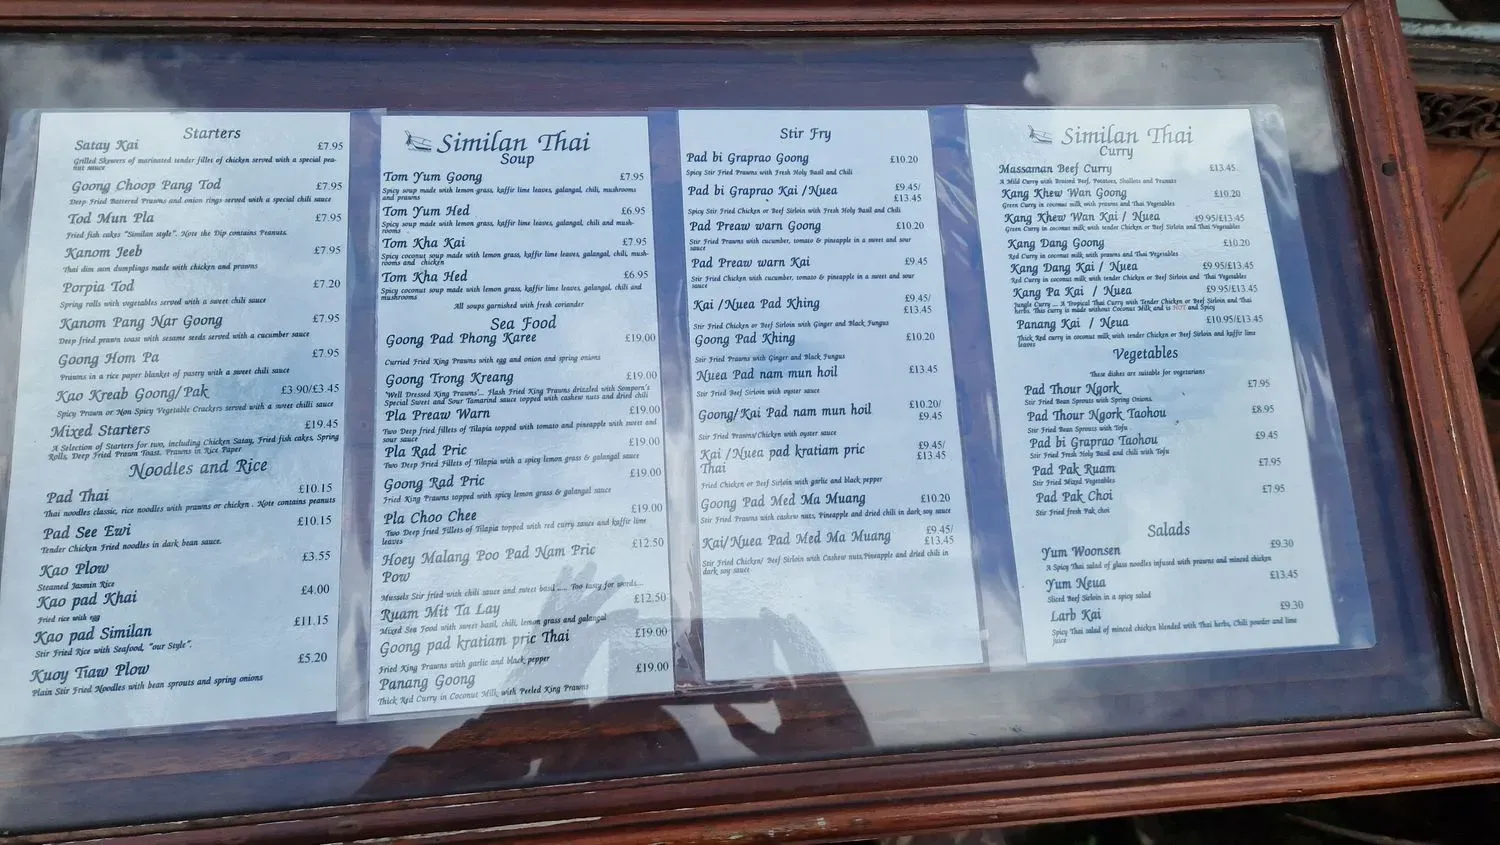 Starters
Satay Kai £7.95
Grilled Skewers of marinated tender fillet of chicken served with a special pea-
nut sauce
Goong Choop Pang Tod £7.95
Deep Fried Battered Prawns and onion rings served with a special chili sauce
Tod Mun Pla £7.95
Fried fish cakes "Similan style". Note the Dip contains Peanuts.
Kanom Jeeb £7.95
Thai dim sun dumplings made with chicken and prawns
Porpia Tod £7.20
Spring rolls with vegetables served with a sweet chili sauce
Kanom Pang Nar Goong £7.95
Deep fried prawn toast with sesame seeds served with a cucumber sauce
Goong Hom Pa £7.95
Prawns in a rice paper blanket of pastry with a sweet chili sauce
Kao Kreab Goong/Pak £3.90/£3.45
Spicy Prawn or Non Spicy Vegetable Crackers served with a sweet chilli sauce
Mixed Starters £19.45
A Selection of Starters for two, including Chicken Satay, Fried fish cakes, Spring
Rolls, Deep Fried Prawn Toast, Prawns in Rice Paper
Noodles and Rice
Pad Thai £10.15
Thai noodles classic, rice noodles with prawns or chicken . Note contains peanuts
Pad See Ewi £10.15
Tender Chicken Fried noodles in dark bean sauce.
Kao Plow £3.55
Steamed Jasmin Rice
Kao pad Khai £4.00
Fried rice with egg
Kao pad Similan £11.15
Stir Fried Rice with Seafood, "our Style".
Kuoy Tiaw Plow £5.20
Plain Stir Fried Noodles with bean sprouts and spring onions
Similan Thai
Soup
Tom Yum Goong £7.95
Spicy soup made with lemon grass, kaffir lime leaves, galangal, chili, mushrooms
and prawns
Tom Yum Hed £6.95
Spicy soup made with lemon grass, kaffir lime leaves, galangal, chili and mush-
rooms
Tom Kha Kai £7.95
Spicy coconut soup made with lemon grass, kaffir lime leaves, galangal, chili, mush-
rooms and chicken
Tom Kha Hed £6.95
Spicy coconut soup made with lemon grass, kaffir lime leaves, galangal, chili and
mushrooms
All soups garnished with fresh coriander
Sea Food
Goong Pad Phong Karee £19.00
Curried Fried King Prawns with egg and onion and spring onions
Goong Trong Kreang £19.00
'Well Dressed King Prawns'... Flash Fried King Prawns drizzled with Somporn's
Special Sweet and Sour Tamarind sauce topped with cashew nuts and dried chili
Pla Preaw Warn £19.00
Two Deep fried fillets of Tilapia topped with tomato and pineapple with sweet and
sour sauce
Pla Rad Pric £19.00
Two Deep Fried Fillets of Tilapia with a spicy lemon grass & galangal sauce
Goong Rad Pric £19.00
Fried King Prawns topped with spicy lemon grass & galangal sauce
Pla Choo Chee £19.00
Two Deep fried Fillets of Tilapia topped with red curry sauce and kaffir lime
leaves
Hoey Malang Poo Pad Nam Pric £12.50
Pow
Mussels Stir fried with chili sauce and sweet basil ..... Too tasty for words....
Ruam Mit Ta Lay £12.50
Mixed Sea Food with sweet basil, chili, lemon grass and galangal
Goong pad kratiam pric Thai £19.00
Fried King Prawns with garlic and black pepper
Panang Goong £19.00
Thick Red Curry in Coconut Milk with Peeled King Prawns
Stir Fry
Pad bi Graprao Goong £10.20
Spicy Stir Fried Prawns with Fresh Holy Basil and Chili
Pad bi Graprao Kai /Nuea £9.45/
£13.45
Spicy Stir Fried Chicken or Beef Sirloin with Fresh Holy Basil and Chili
Pad Preaw warn Goong £10.20
Stir Fried Prawns with cucumber, tomato & pineapple in a sweet and sour
sauce
Pad Preaw warn Kai £9.45
Stir Fried Chicken with cucumber, tomato & pineapple in a sweet and sour
sauce
Kai /Nuea Pad Khing £9.45/
£13.45
Stir Fried Chicken or Beef Sirloin with Ginger and Black Fungus
Goong Pad Khing £10.20
Stir Fried Prawns with Ginger and Black Fungus
Nuea Pad nam mun hoil £13.45
Stir Fried Beef Sirloin with oyster sauce
Goong/Kai Pad nam mun hoil £10.20/
£9.45
Stir Fried Prawns/Chicken with oyster sauce
Kai /Nuea pad kratiam pric £9.45/
Thai £13.45
Fried Chicken or Beef Sirloin with garlic and black pepper
Goong Pad Med Ma Muang £10.20
Stir Fried Prawns with cashew nuts, Pineapple and dried chili in dark soy sauce
Kai/Nuea Pad Med Ma Muang £9.45/
£13.45
Stir Fried Chicken/ Beef Sirloin with Cashew nuts,Pineapple and dried chili in
dark soy sauce
Similan Thai
Curry
Massaman Beef Curry £13.45
A Mild Curry with Braised Beef, Potatoes, Shallots and Peanuts
Kang Khew Wan Goong £10.20
Green Curry in coconut milk with prawns and Thai Vegetables
Kang Khew Wan Kai / Nuea £9.95/£13.45
Green Curry in coconut milk with tender Chicken or Beef Sirloin and Thai Vegetables
Kang Dang Goong £10.20
Red Curry in coconut milk with prawns and Thai Vegetables
Kang Dang Kai / Nuea £9.95/£13.45
Red Curry in coconut milk with tender Chicken or Beef Sirloin and Thai Vegetables
Kang Pa Kai / Nuea £9.95/£13.45
Jungle Curry ... A Tropical Thai Curry with Tender Chicken or Beef Sirloin and Thai
herbs. This curry is made without Coconut Milk and is HOT and Spicy
Panang Kai / Neua £10.95/£13.45
Thick Red curry in coconut milk with tender Chicken or Beef Sirloin and kaffir lime
leaves
Vegetables
These dishes are suitable for vegetarians
Pad Thour Ngork £7.95
Stir Fried Bean Sprouts with Spring Onions.
Pad Thour Ngork Taohou £8.95
Stir Fried Bean Sprouts with Tofu
Pad bi Graprao Taohou £9.45
Stir Fried Fresh Holy Basil and chili with Tofu
Pad Pak Ruam £7.95
Stir Fried Mixed Vegetables
Pad Pak Choi £7.95
Stir Fried fresh Pak choi
Salads
Yum Woonsen £9.30
A Spicy Thai salad of glass noodles infused with prawns and minced chicken
Yum Neua £13.45
Sliced Beef Sirloin in a spicy salad
Larb Kai £9.30
Spicy Thai salad of minced chicken blended with Thai herbs, Chili powder and lime
juice